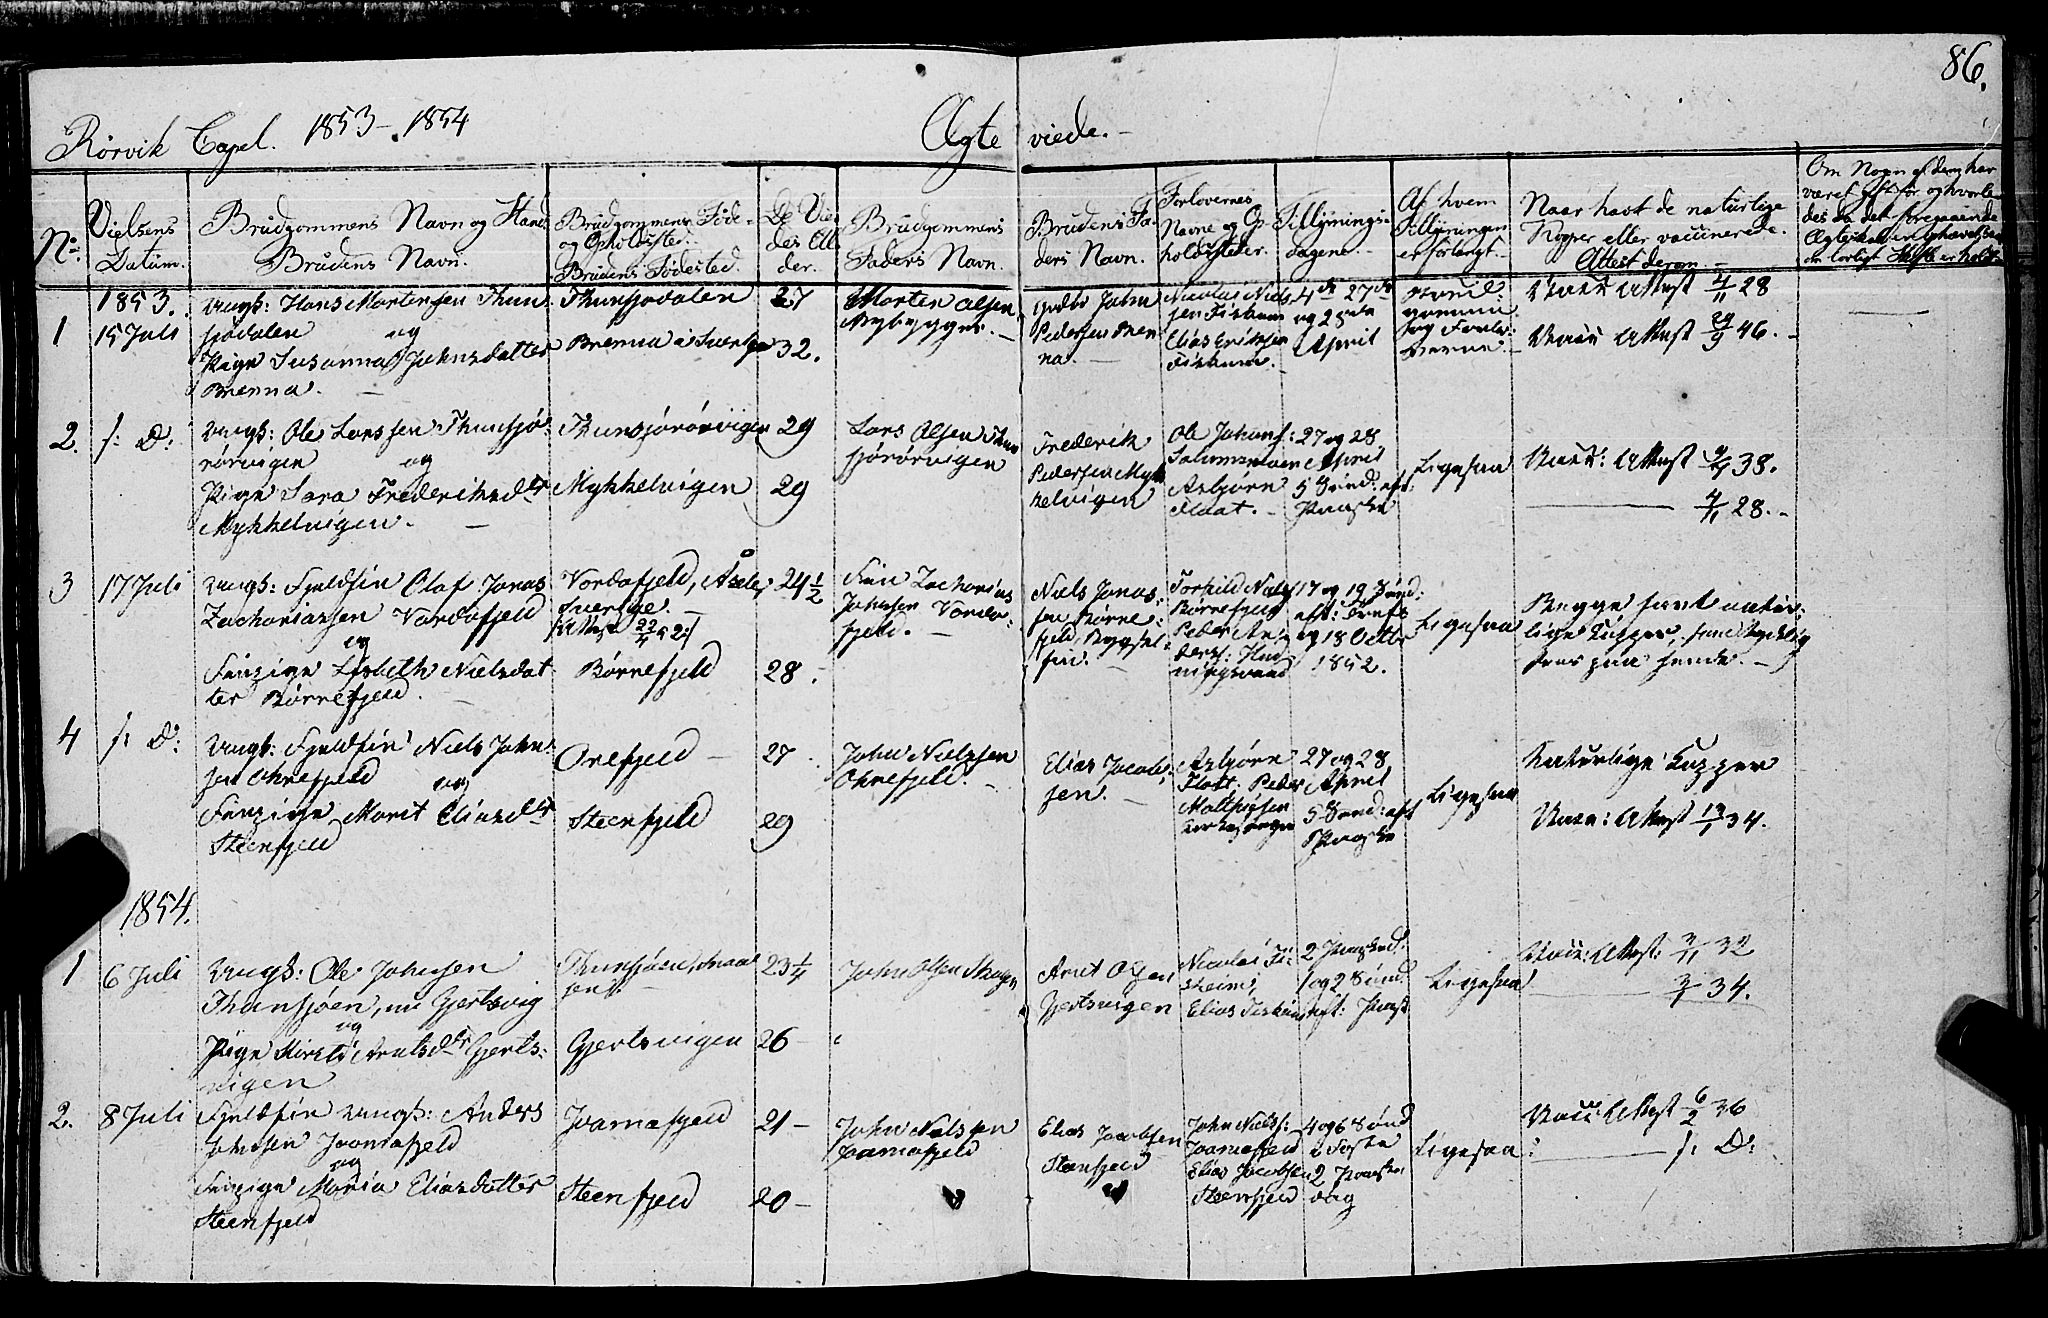 86.
Rörvik Capel. 1853-1854
Ægte viede.-
No.
Vielsens Datum.
Brudgommens Navn og Stand
Brudens Navn.
Brudgommens Føde- og Opholdsted.
Brudens Fødested
De Vie- des Al- der.
Brudgommens Faders Navn.
Brudens Fa- ders Navn.
Forlovernes Navne og Op- holdssteder.
Tillysnings- dagene.
Af hvem Tillysningen er forlangt.
Naar havt de naturlige Kopper eller vaccinerede. Attest derom
Om Nogen af dem har været gift før og hvorle- des da det foregaaende Ægteskab er ophævet
1853.
1
15 Juli
Ungk: Hans Mortensen Thun-
sjødalen
og
Pige Susanna Johnsdatter
Brenna.
Thunsjødalen
Brenna i Sverige
27
32.
Morten Olsen
Nybygger.
John
Pedersen Bren-
na.
Nicolai Niels-
sen Fiskum
Elias Eriksen
Fiskum.
4de 27de
og 28de
April
Brud-
gommen
og Forlo-
verne.
Vacc Attest 4/11 28
Vacc Attest 29/9 46.
2.
/: D:
Ungk: Ole Larssen Thunsjø-
rörvigen
og
Pige Sara Frederiksdtr
Mykkelvigen.
Thunsjörörvigen
Mykkelvigen
29
29
Lars Olsen Thun-
sjörörvigen
Frederik
Pedersen Myk-
kelvigen
Ole Johans:
Asbjørn
Flaat.
27 og 28
April
5 Sönd: eft:
Paaske
Ligesaa
Vacc: Attest 9/9 38.
4/11 28.
3
17 Juli
Ungk: Fjeldfin Olaf Jonas
Zachariassen Vardofjeld
og
Finpige Lisbeth Nielsdat-
ter Börrefjeld.
Vardofjeld, Åsele,
Sverige.
Attest 22/4 52:/
Börrefjeld
24 1/2
28.
Fin Zacharias
Johnsen Vardo-
fjeld.
Niels Jonas-
sen Börre-
fjeld,
fin.
Torkild Niels
Börrefjeld
Peder An-
ders:
17 og 19 Sönd:
eft: Trinit
og 18 Octbr
1852.
Ligesaa
Begge havt natur-
lige Kopper,
4
/: D:
Ungk: Fjeldfin Niels John-
sen Ohrefjeld
og
Finpige Marit Eliasdtr
Steenfjeld
Orefjeld
Steenfjeld
27
29
John Nielssen
Ohrefjeld.
Elias Jacob-
sen.
Asbjørn
Flatt. Peder
Mathisen
27 og 28
April
5 Sönd: eft
Paaske
Ligesaa
Naturlige Kopper
Vacc: Attest 13/1 34.
1854.
1
6 Juli
Ungk: Ole Johnsen
Thunsjöen, nu Gjertsvig
og
Pige Kirsti Arntsdtr Gjerts-
vigen
Thunsjöen,
Gjertsvigen
23 1/4
26
John Olsen
Arnt Olsen
Gjertsvigen
Nicolai Fi-
Elias Fiskum
2 Paaskd:
1 og 2 Sönd:
eft: Paask
Ligesaa
Vacc: Attest: 3/11 32
3/1 34.
2.
8 Juli
Fjeldfin Ungk: Anders
Johnsen Joamafjeld
og
Finpige Maria Eliasdatter
Steenfjeld
Joamafjeld
Steenfjeld
21
20
John Nielssen
Joamafjeld
Elias Jacobsen
Steenfjeld
John Niels:
Joamafjeld
Elias Jacobsen
Steenfjeld
4 og 6 Sönd
i Faste
2 Paaske
dag
Ligesaa
Vacc: Attest 6/2 36
/: D: